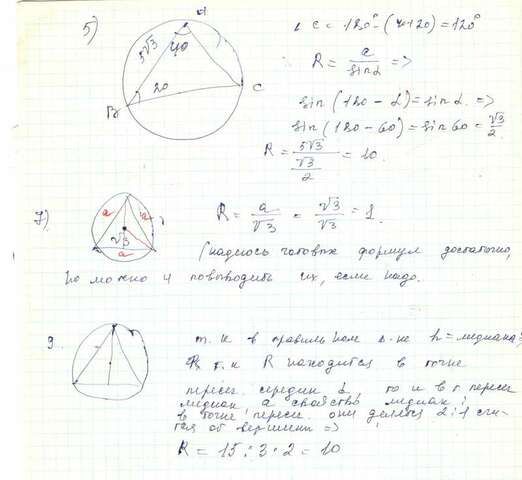 5)
A
5√3
40
20
B
C
∠ C = 180° - (40+20) = 120°
R = a / sin α =>
sin (180 - α) = sin α =>
sin (180 - 60) = sin 60 = √3 / 2
R = 5√3 / (√3 / 2) = 10.
7)
a
a
√3
a
R = a / √3 = √3 / √3 = 1.
(надеюсь готовых формул достаточно,
но можно и повыводить их, если надо.
9.
т. к в правильном Δ-ке h = медиана;
т. к R находится в точке
пересеч. середин то и в т. пересеч
медиан, а свойство медиан:
в точке пересеч. они делятся 2:1 счи-
тая от вершины =>
R = 15 : 3 · 2 = 10